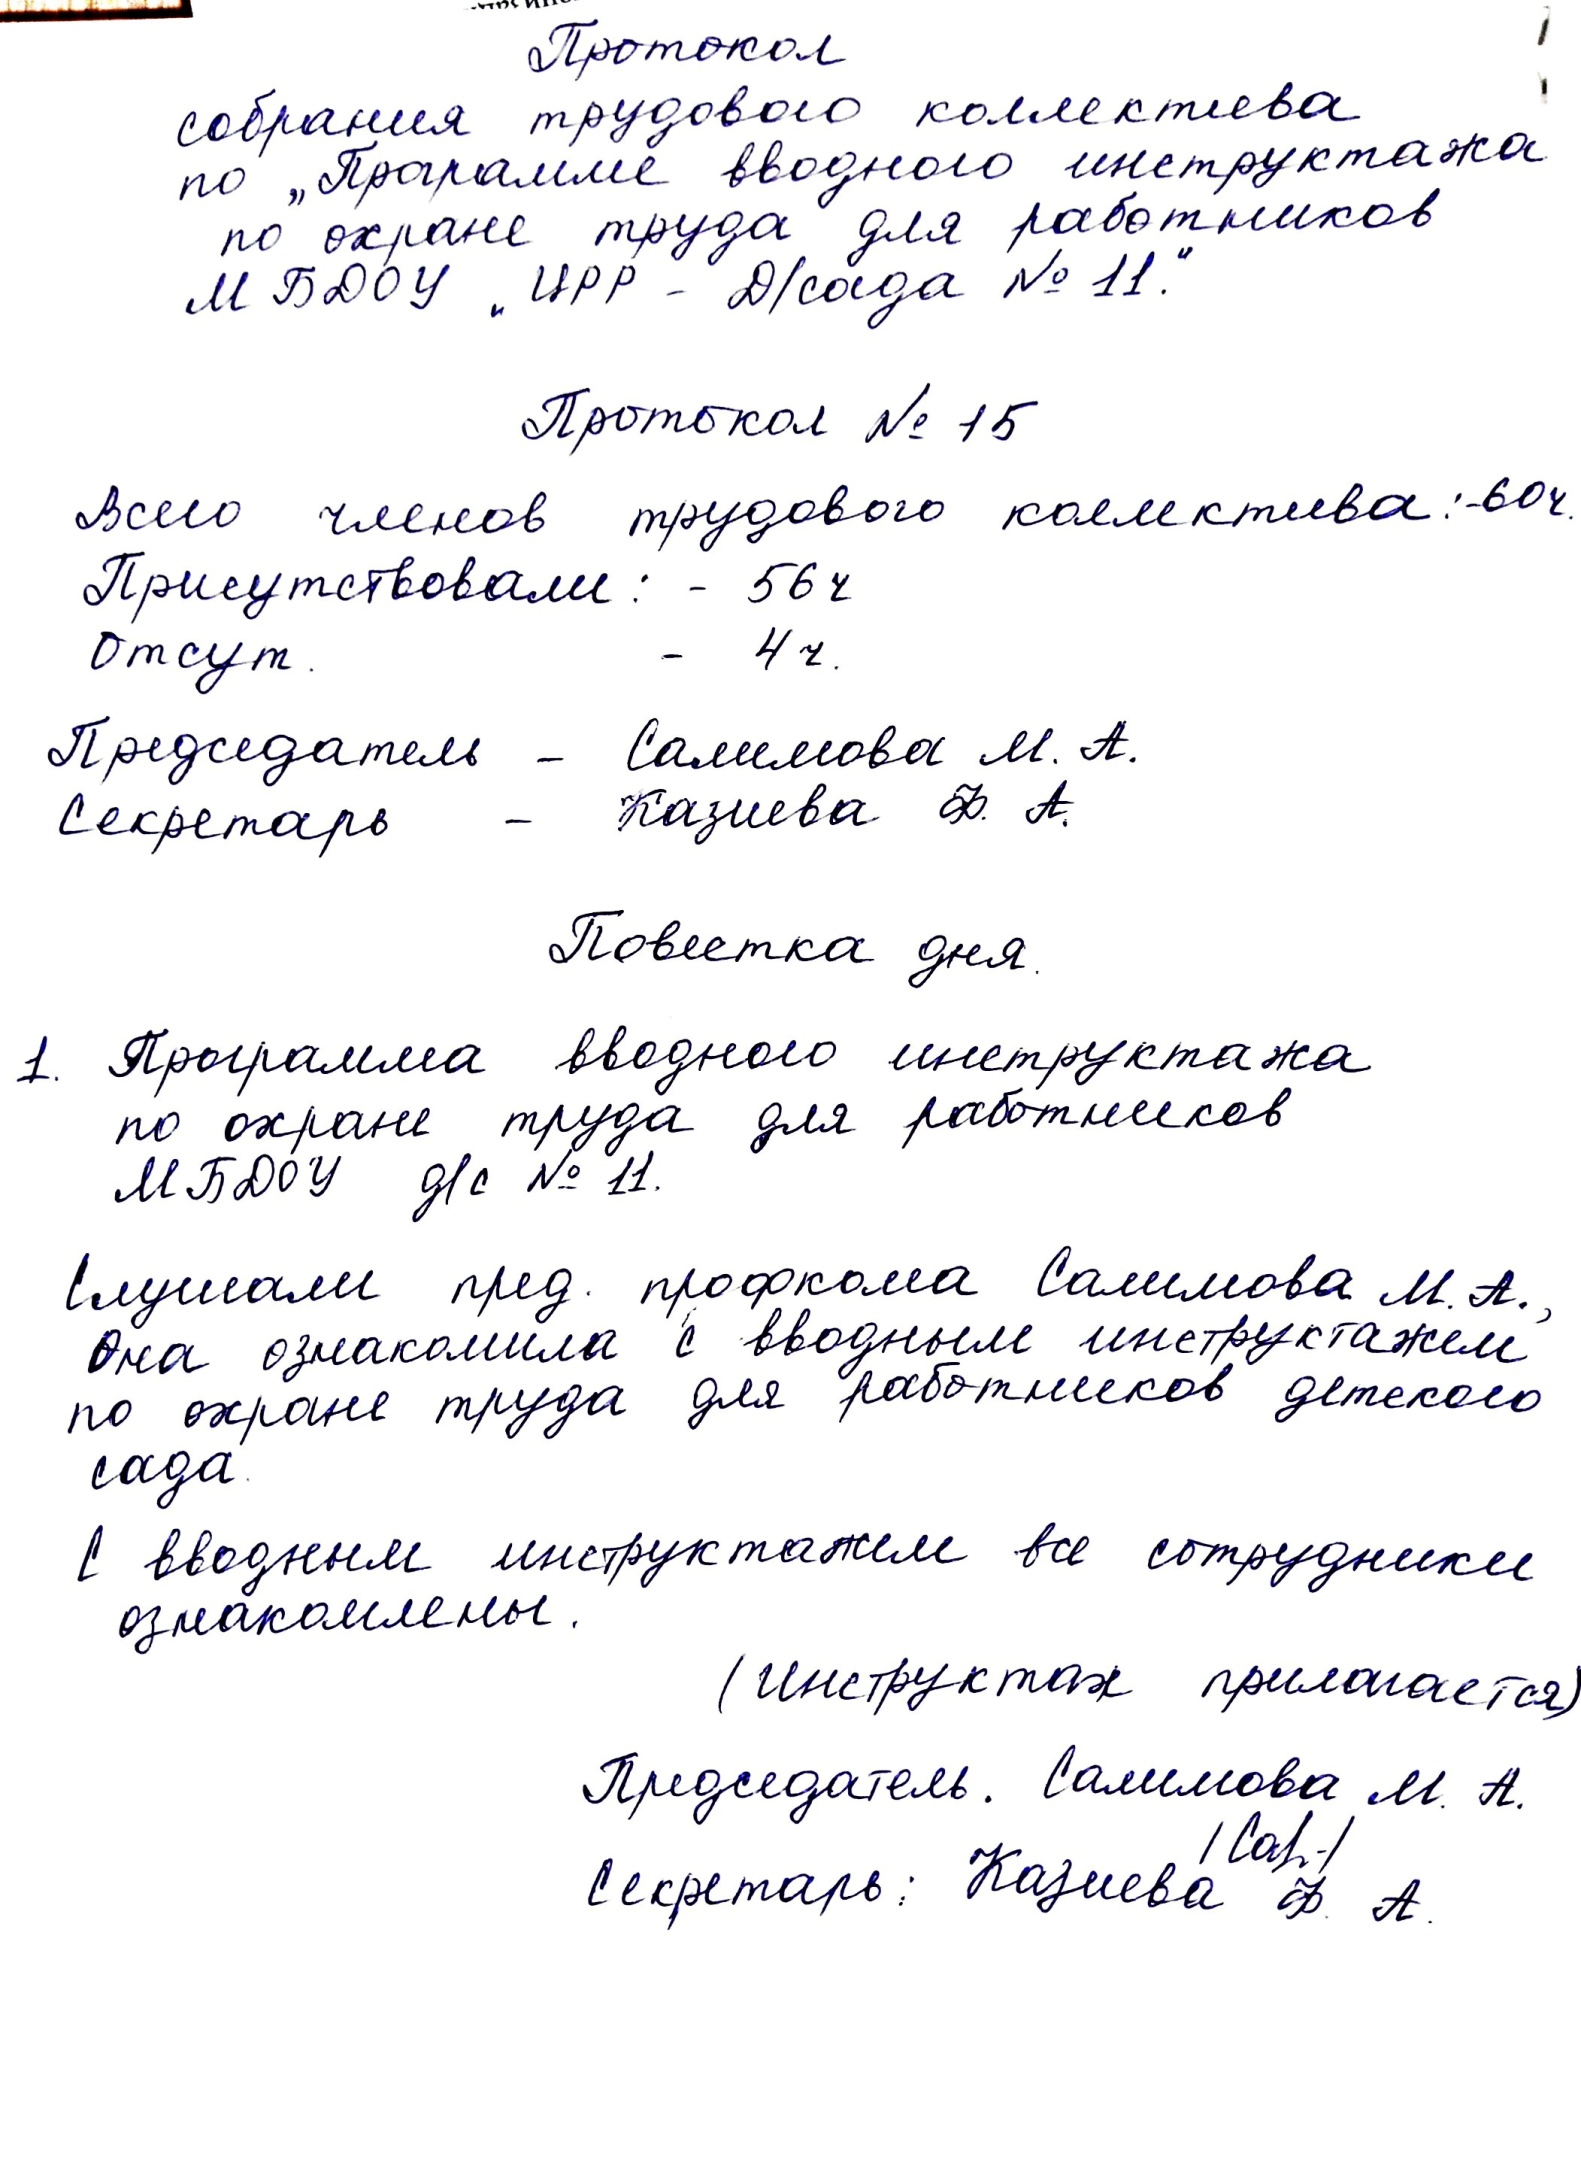 Протокол
собрания трудового коллектива
по „Программе вводного инструктажа
по охране труда для работников
МБДОУ „ЦРР - Д/сада № 11."
Протокол № 15
Всего членов трудового коллектива: - 60ч.
Присутствовали: - 56ч
Отсут. - 4ч.
Председатель - Салимова М. А.
Секретарь - Казиева Ф. А.
Повестка дня.
1. Программа вводного инструктажа
по охране труда для работников
МБДОУ д/с № 11.
Слушали пред. профкома Салимова М. А.,
Она ознакомила с вводным инструктажем
по охране труда для работников детского
сада.
С вводным инструктажем все сотрудники
ознакомлены.
(Инструктаж прилагается)
Председатель. Салимова М. А.
Секретарь: Казиева Ф. А.